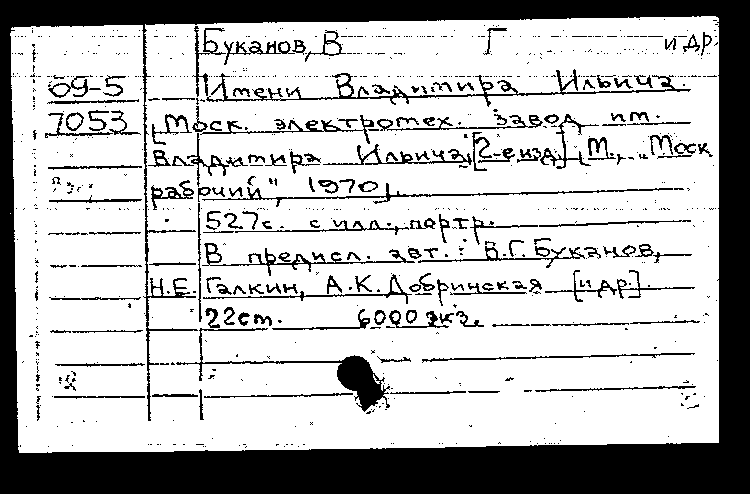 Буканов, В Г и др.
69-5 Имени Владимира Ильича.
7053 [Моск. электротех. завод им.
Владимира Ильича, [2-е изд.] [М., „Моск
рабочий", 1970].
527с. с илл., портр.
В предисл. авт.: В.Г. Буканов,
Н.Е. Галкин, А.К. Добринская [и др.].
22см. 6000 экз.